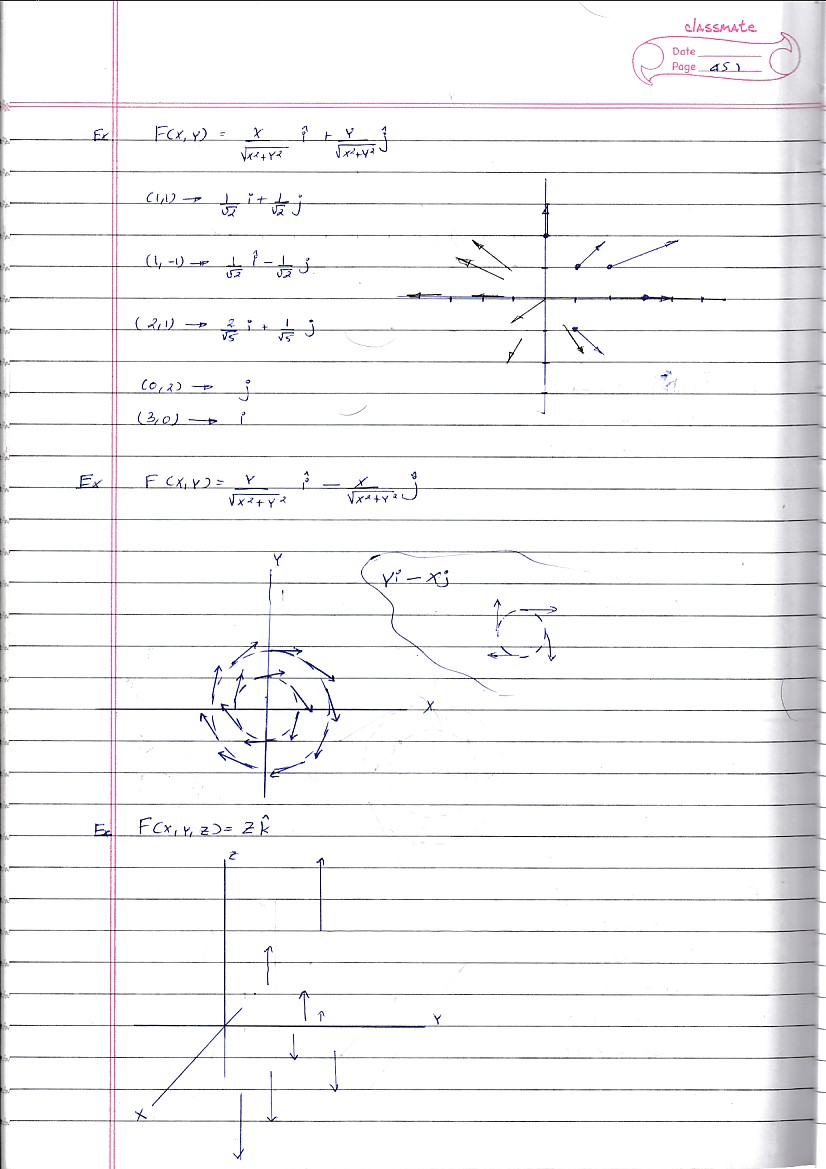 classmate
Date
Page 451
Ex F(x,y) = x/√x²+y² î + y/√x²+y² ĵ
(1,1) → 1/√2 i + 1/√2 j
(1,-1) → 1/√2 î − 1/√2 j
(2,1) → 2/√5 i + 1/√5 j
(0,2) → j
(3,0) → i
Ex F(x,y) = y/√x²+y² î − x/√x²+y² ĵ
Y
yi − xj
X
Ex F(x,y,z) = z k̂
Z
Y
X